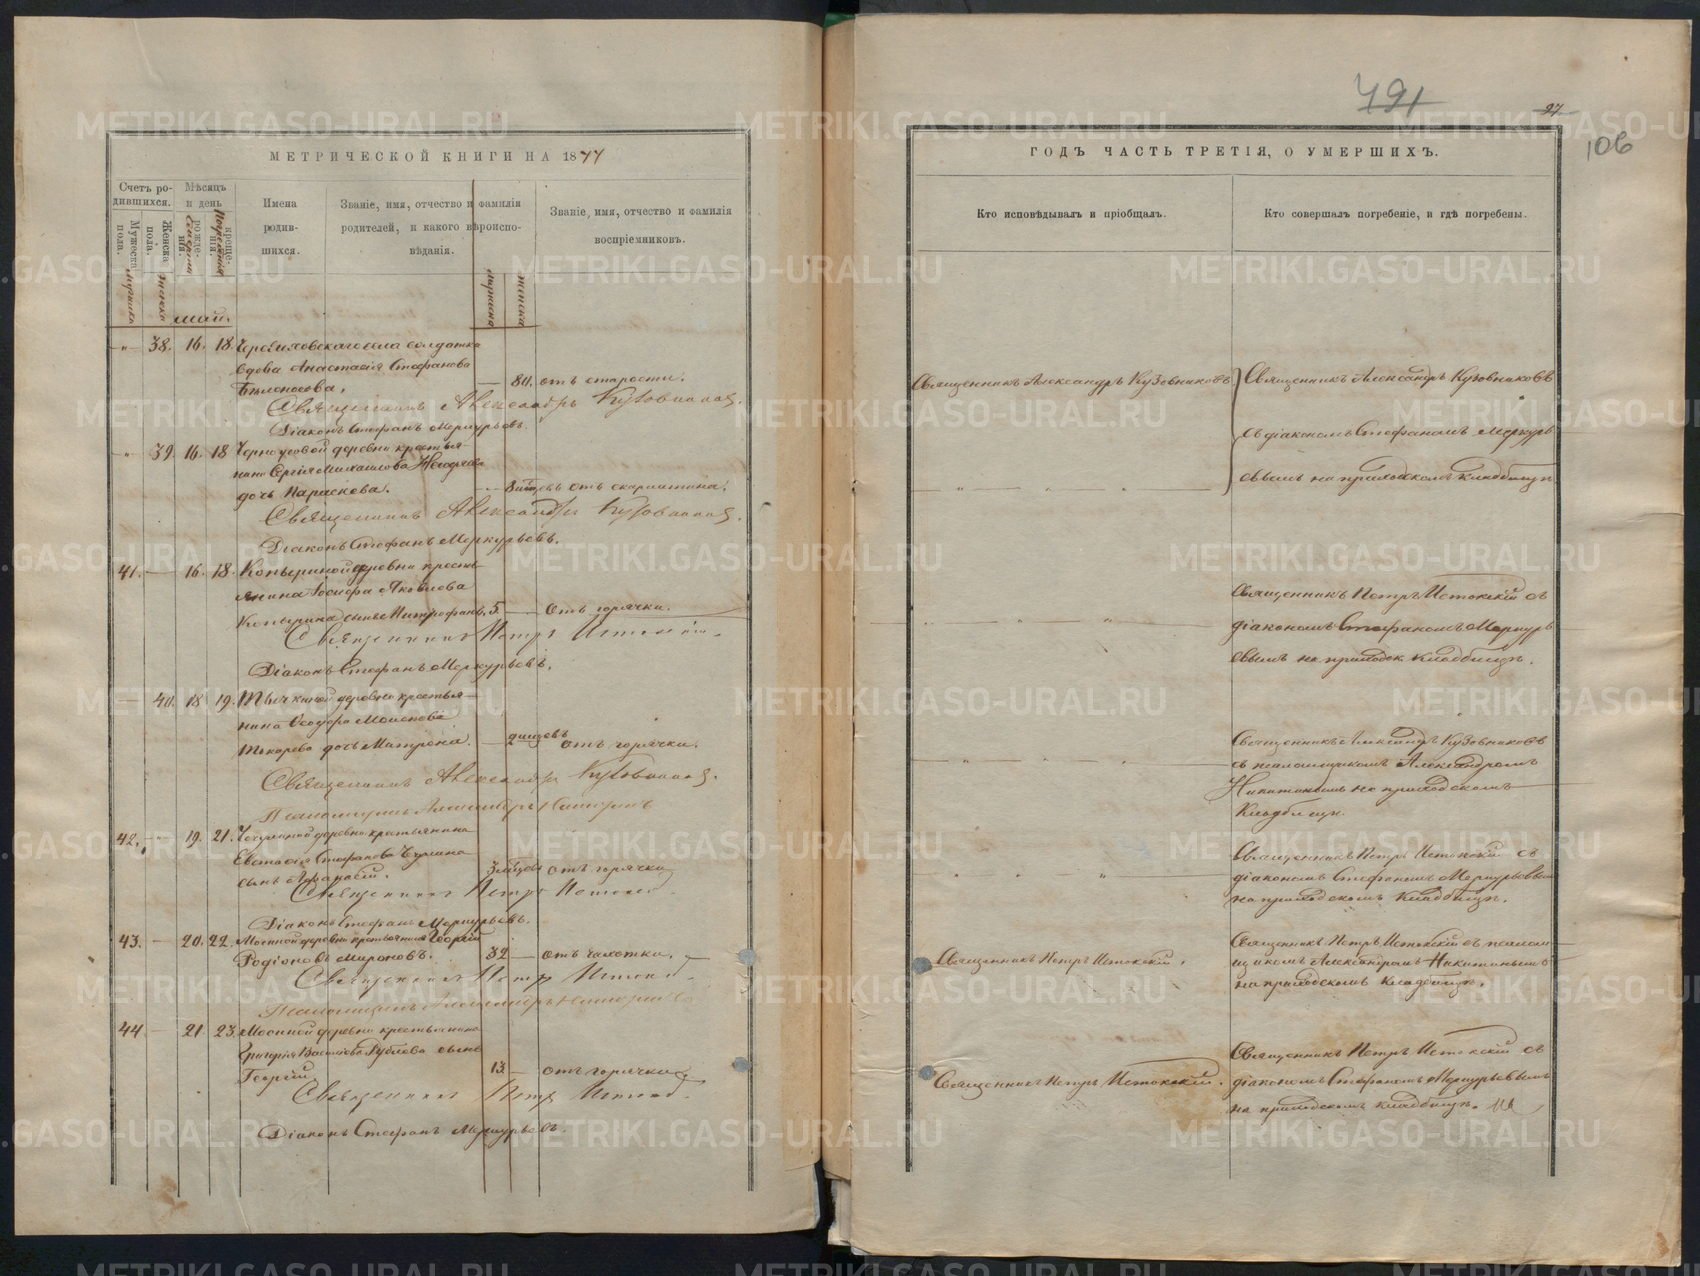 МЕТРИЧЕСКОЙ КНИГИ НА 1877
Счетъ ро-
дившихся.
Мужеска пола.
Женска пола.
Мѣсяцъ
и день
рожде-
нія.
креще-
нія.
Погребенія
Имена
родив-
шихся.
Званіе, имя, отчество и фамилія
родителей, и какого вѣроиспо-
вѣданія.
Званіе, имя, отчество и фамилія
воспріемниковъ.
мужеска
женска
мужеска
женска
Май.
38. 16. 18. села солдатка
вдова Анастасія Стефанова
80. отъ старости.
Священникъ Александръ Кузовниковъ.
Діаконъ Стефанъ Меркурьевъ.
39. 16. 18 Черноусовой деревни крестья-
нина Сергія Михаилова
дочь Параскева.
отъ скарлатина.
Священникъ Александръ Кузовниковъ.
Діаконъ Стефанъ Меркурьевъ.
41. — 16. 18. деревни кресть-
янина Іосифа Яковлева
сынъ Митрофанъ. 5. — отъ горячки.
Священникъ Петръ Истокскій.
Діаконъ Стефанъ Меркурьевъ.
— 40. 18 19. деревни крестья-
нина Ѳеодора Моисеева
Токарева дочь Матрона. — отъ горячки.
Священникъ Александръ Кузовниковъ.
Псаломщикъ Александръ Никитинъ
42. 19. 21. деревни крестьянина
Евстаѳія Стефанова
сынъ Аѳанасій.
отъ горячки
Священникъ Петръ Истокскій.
Діаконъ Стефанъ Меркурьевъ.
43. — 20. 22. Мосиной деревни крестьянинъ Георгій
Родіоновъ Мироновъ. 32 — отъ чахотки.
Священникъ Петръ Истокскій.
Псаломщикъ Александръ Никитинъ
44. — 21 23. Мосиной деревни крестьянина
Григорія Васильева Рублева сынъ
Георгій 13 — отъ горячки
Священникъ Петръ Истокскій.
Діаконъ Стефанъ Меркурьевъ.
491
97
106
ГОДЪ ЧАСТЬ ТРЕТІЯ, О УМЕРШИХЪ.
Кто исповѣдывалъ и пріобщалъ.
Кто совершалъ погребеніе, и гдѣ погребены.
Священникъ Александръ Кузовниковъ
Священникъ Александръ Кузовниковъ
съ діакономъ Стефаномъ Меркурь-
евымъ на приходскомъ кладбищѣ
Священникъ Петръ Истокскій съ
діакономъ Стефаномъ Меркурь-
евымъ на приходск. кладбищѣ.
Священникъ Александръ Кузовниковъ
съ псаломщикомъ Александромъ
Никитинымъ на приходскомъ
кладбищѣ.
Священникъ Петръ Истокскій съ
діакономъ Стефаномъ Меркурьевымъ
на приходскомъ кладбищѣ.
Священникъ Петръ Истокскій.
Священникъ Петръ Истокскій съ псалом-
щикомъ Александромъ Никитинымъ
на приходскомъ кладбищѣ.
Священникъ Петръ Истокскій.
Священникъ Петръ Истокскій съ
діакономъ Стефаномъ Меркурьевымъ
на приходскомъ кладбищѣ.
METRIKI.GASO-URAL.RU